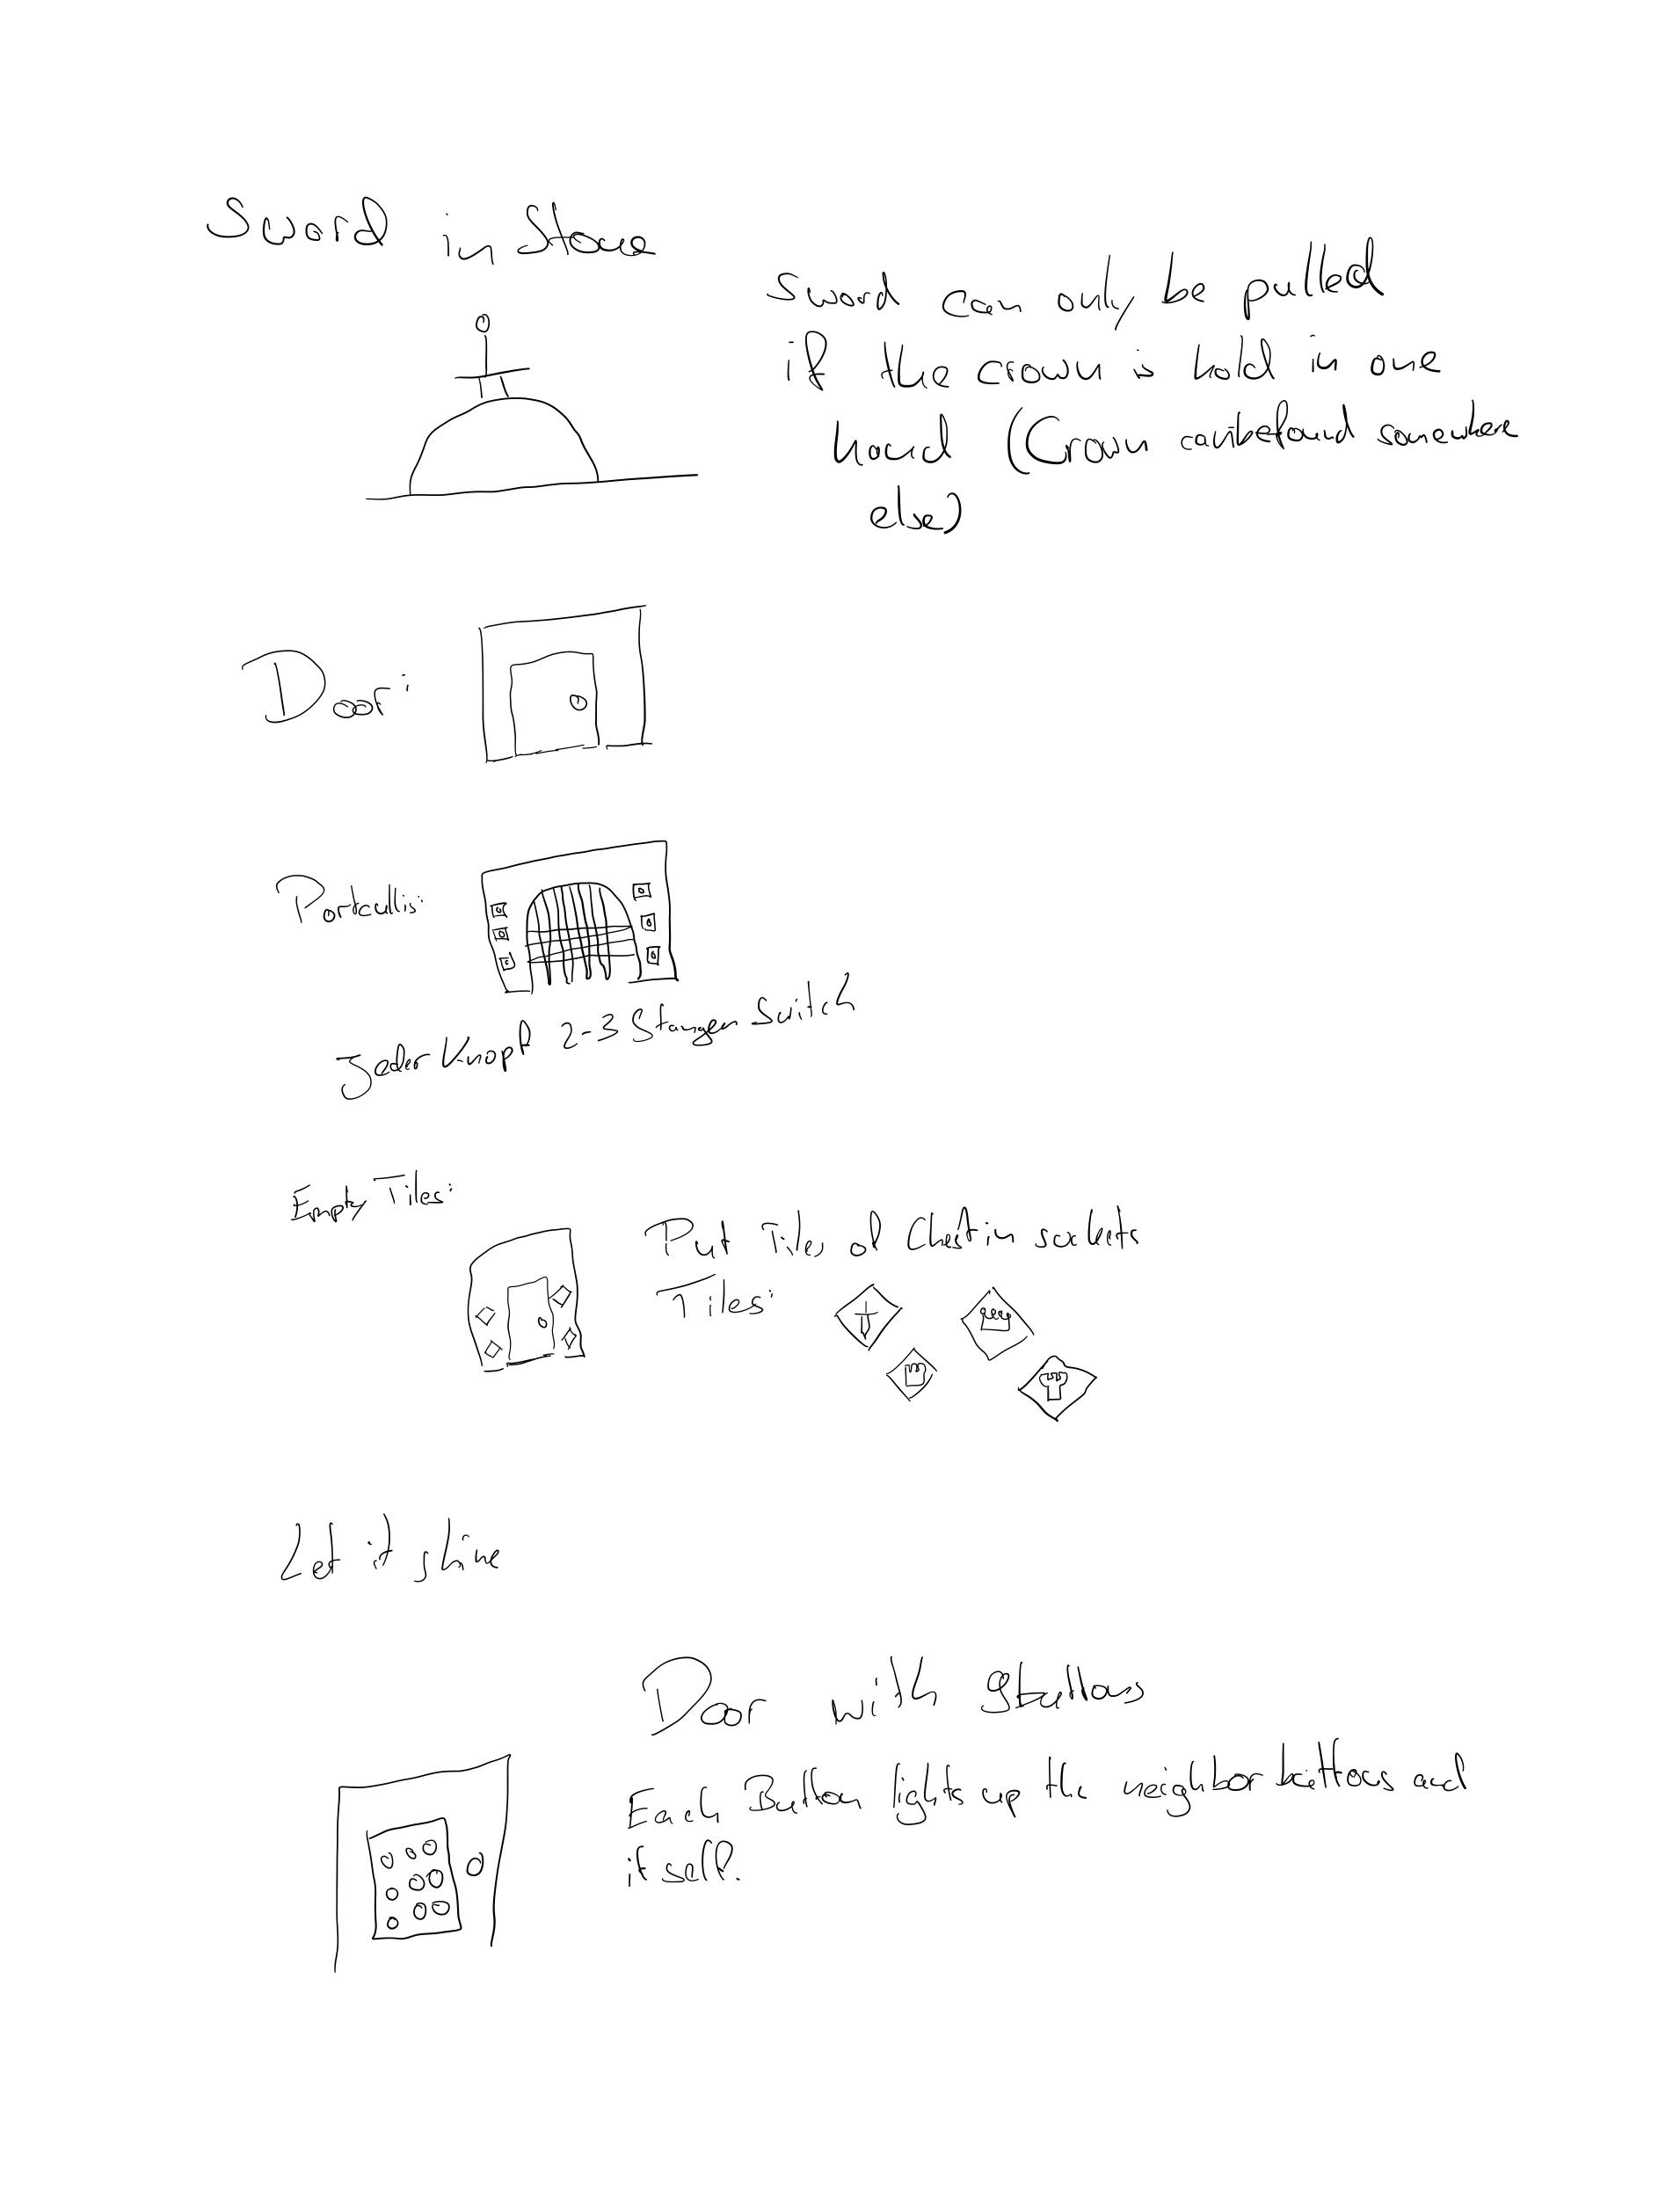 Sword in Stone
Sword can only be pulled
if the crown is hold in one
hand (Crown canbefound somewhere
else)
Door:
Portcullis:
Jeder Knopf 2-3 Stangen Switch
Empty Tiles:
Put Tiles of Chest in sockets
Tiles:
Let it shine
Door with 9buttons
Each Button lights up the neighbor buttons and
itself.